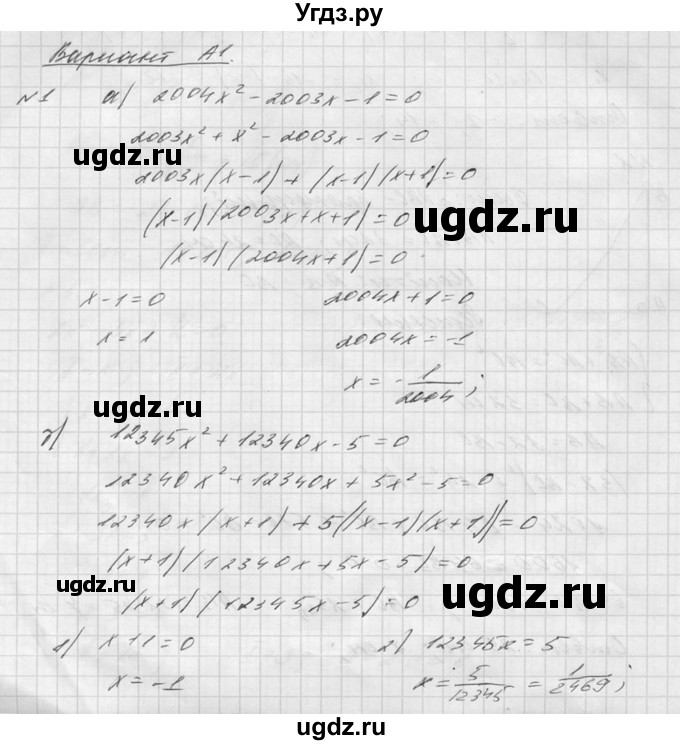 Угдз.ру
Вариант А1.
№1 а) 2004x² - 2003x - 1 = 0
2003x² + x² - 2003x - 1 = 0
ugdz.ru
2003x(x-1) + (x-1)(x+1) = 0
(x-1)(2003x+x+1) = 0
ugdz.ru
(x-1)(2004x+1) = 0
x-1=0 2004x+1=0
x=1 2004x=-1
x = -1/2004;
ugdz.ru
б) 12345x² + 12340x - 5 = 0
12340x² + 12340x + 5x² - 5 = 0
12340x(x+1) + 5((x-1)(x+1)) = 0
ugdz.ru
(x+1)(12340x+5x-5) = 0
ugdz.ru
(x+1)(12345x-5) = 0
1) x+1=0 2) 12345x=5
x=-1 x=5/12345=1/2469;
ugdz.ru
ugdz.ru